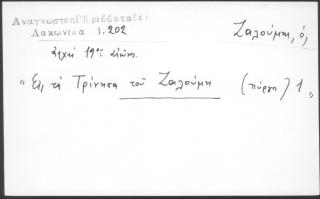 Ἀναγνωστοπ Γκρεββαταδες
Λακωνικα 1.202
Ζαλούμη, ὁ,
ἀρχαὶ 19ου αἰῶν.
"Εἰς τὰ Τρίνησα τοῦ Ζαλούμη (πύργοι) 1"